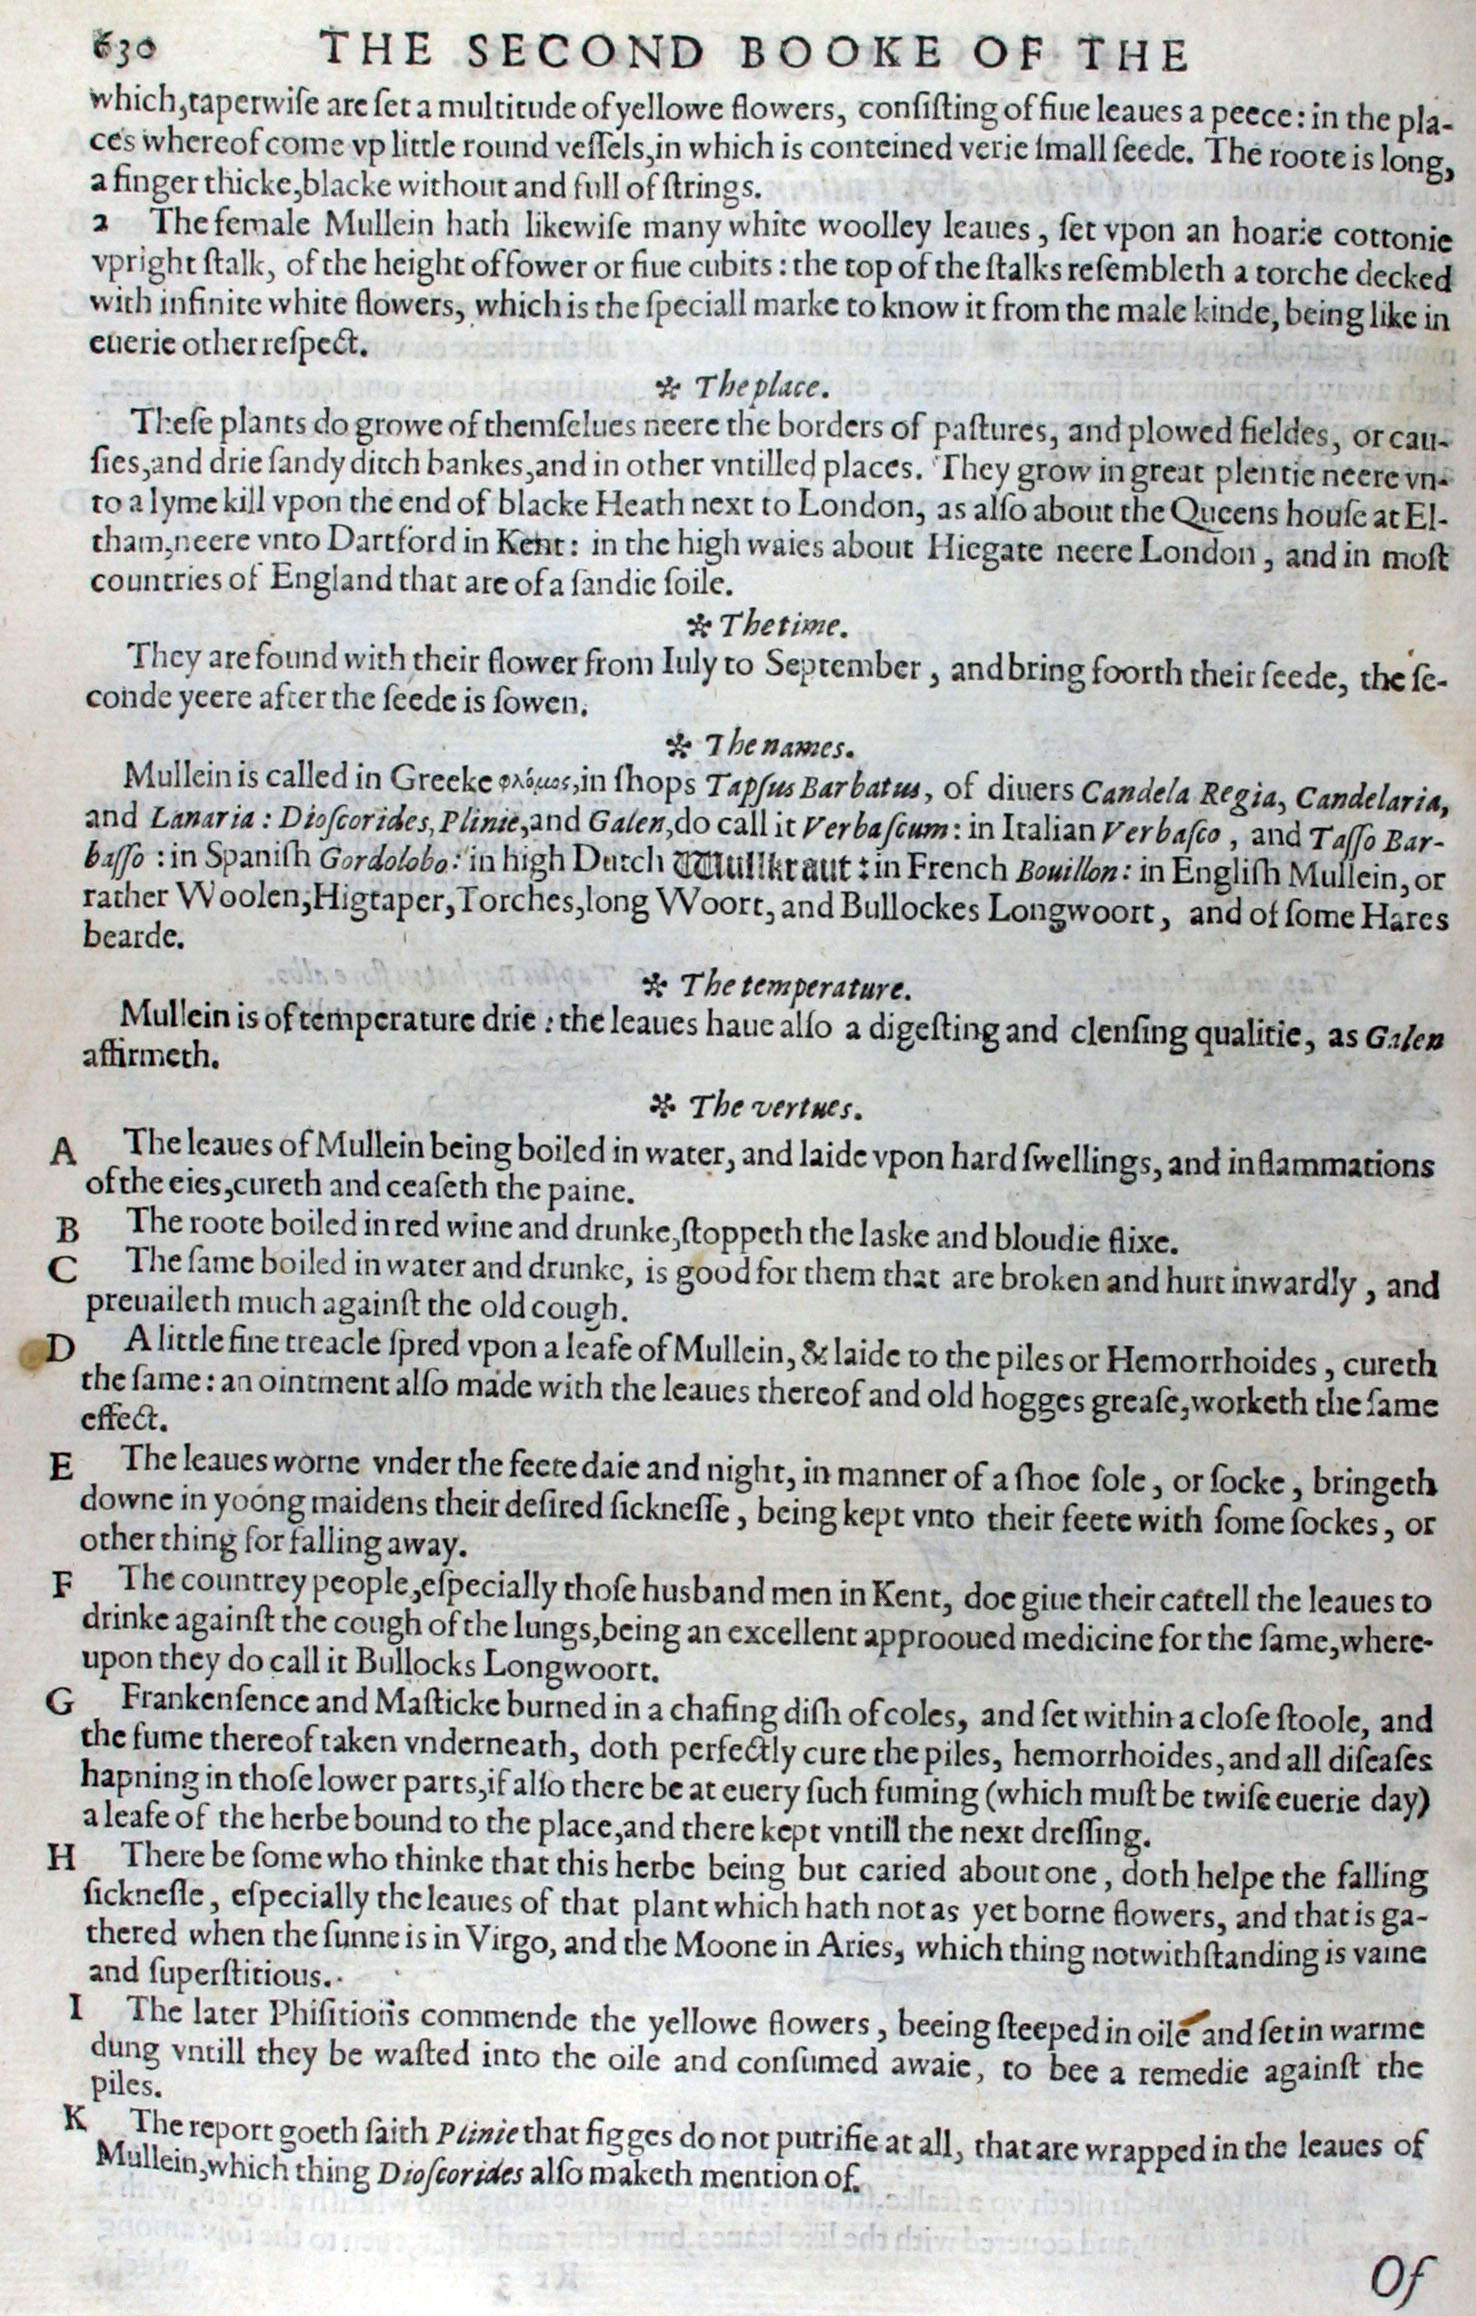 630 THE SECOND BOOKE OF THE
which, taperwiſe are ſet a multitude of yellowe flowers, conſiſting of fiue leaues a peece: in the pla-
ces whereof come vp little round veſſels, in which is conteined verie ſmall ſeede. The roote is long,
a finger thicke, blacke without and full of ſtrings.
2 The female Mullein hath likewiſe many white woolley leaues, ſet vpon an hoarie cottonie
vpright ſtalk, of the height of fower or fiue cubits: the top of the ſtalks reſembleth a torche decked
with infinite white flowers, which is the ſpeciall marke to know it from the male kinde, being like in
euerie other reſpect.
✻ The place.
Theſe plants do growe of themſelues neere the borders of paſtures, and plowed fieldes, or cau-
ſies, and drie ſandy ditch bankes, and in other vntilled places. They grow in great plentie neere vn-
to a lyme kill vpon the end of blacke Heath next to London, as alſo about the Queens houſe at El-
tham, neere vnto Dartford in Kent: in the high waies about Hiegate neere London, and in moſt
countries of England that are of a ſandie ſoile.
✻ The time.
They are found with their flower from Iuly to September, and bring foorth their ſeede, the ſe-
conde yeere after the ſeede is ſowen.
✻ The names.
Mullein is called in Greeke φλόμος, in ſhops Tapſus Barbatus, of diuers Candela Regia, Candelaria,
and Lanaria: Dioſcorides, Plinie, and Galen, do call it Verbaſcum: in Italian Verbaſco, and Taſſo Bar-
baſſo: in Spaniſh Gordolobo: in high Dutch Wullkraut: in French Bouillon: in Engliſh Mullein, or
rather Woolen, Higtaper, Torches, long Woort, and Bullockes Longwoort, and of ſome Hares
bearde.
✻ The temperature.
Mullein is of temperature drie: the leaues haue alſo a digeſting and clenſing qualitie, as Galen
affirmeth.
✻ The vertues.
A The leaues of Mullein being boiled in water, and laide vpon hard ſwellings, and inflammations
of the eies, cureth and ceaſeth the paine.
B The roote boiled in red wine and drunke, ſtoppeth the laske and bloudie flixe.
C The ſame boiled in water and drunke, is good for them that are broken and hurt inwardly, and
preuaileth much againſt the old cough.
D A little fine treacle ſpred vpon a leafe of Mullein, & laide to the piles or Hemorrhoides, cureth
the ſame: an ointment alſo made with the leaues thereof and old hogges greaſe, worketh the ſame
effect.
E The leaues worne vnder the feete daie and night, in manner of a ſhoe ſole, or ſocke, bringeth
downe in yoong maidens their deſired ſickneſſe, being kept vnto their feete with ſome ſockes, or
other thing for falling away.
F The countrey people, eſpecially thoſe husband men in Kent, doe giue their cattell the leaues to
drinke againſt the cough of the lungs, being an excellent approoued medicine for the ſame, where-
upon they do call it Bullocks Longwoort.
G Frankenſence and Maſticke burned in a chafing diſh of coles, and ſet within a cloſe ſtoole, and
the fume thereof taken vnderneath, doth perfectly cure the piles, hemorrhoides, and all diſeaſes
hapning in thoſe lower parts, if alſo there be at euery ſuch fuming (which muſt be twiſe euerie day)
a leafe of the herbe bound to the place, and there kept vntill the next dreſſing.
H There be ſome who thinke that this herbe being but caried about one, doth helpe the falling
ſickneſſe, eſpecially the leaues of that plant which hath not as yet borne flowers, and that is ga-
thered when the ſunne is in Virgo, and the Moone in Aries, which thing notwithſtanding is vaine
and ſuperſtitious.
I The later Phiſitions commende the yellowe flowers, beeing ſteeped in oile and ſet in warme
dung vntill they be waſted into the oile and conſumed awaie, to bee a remedie againſt the
piles.
K The report goeth ſaith Plinie that figges do not putrifie at all, that are wrapped in the leaues of
Mullein, which thing Dioſcorides alſo maketh mention of.
Of